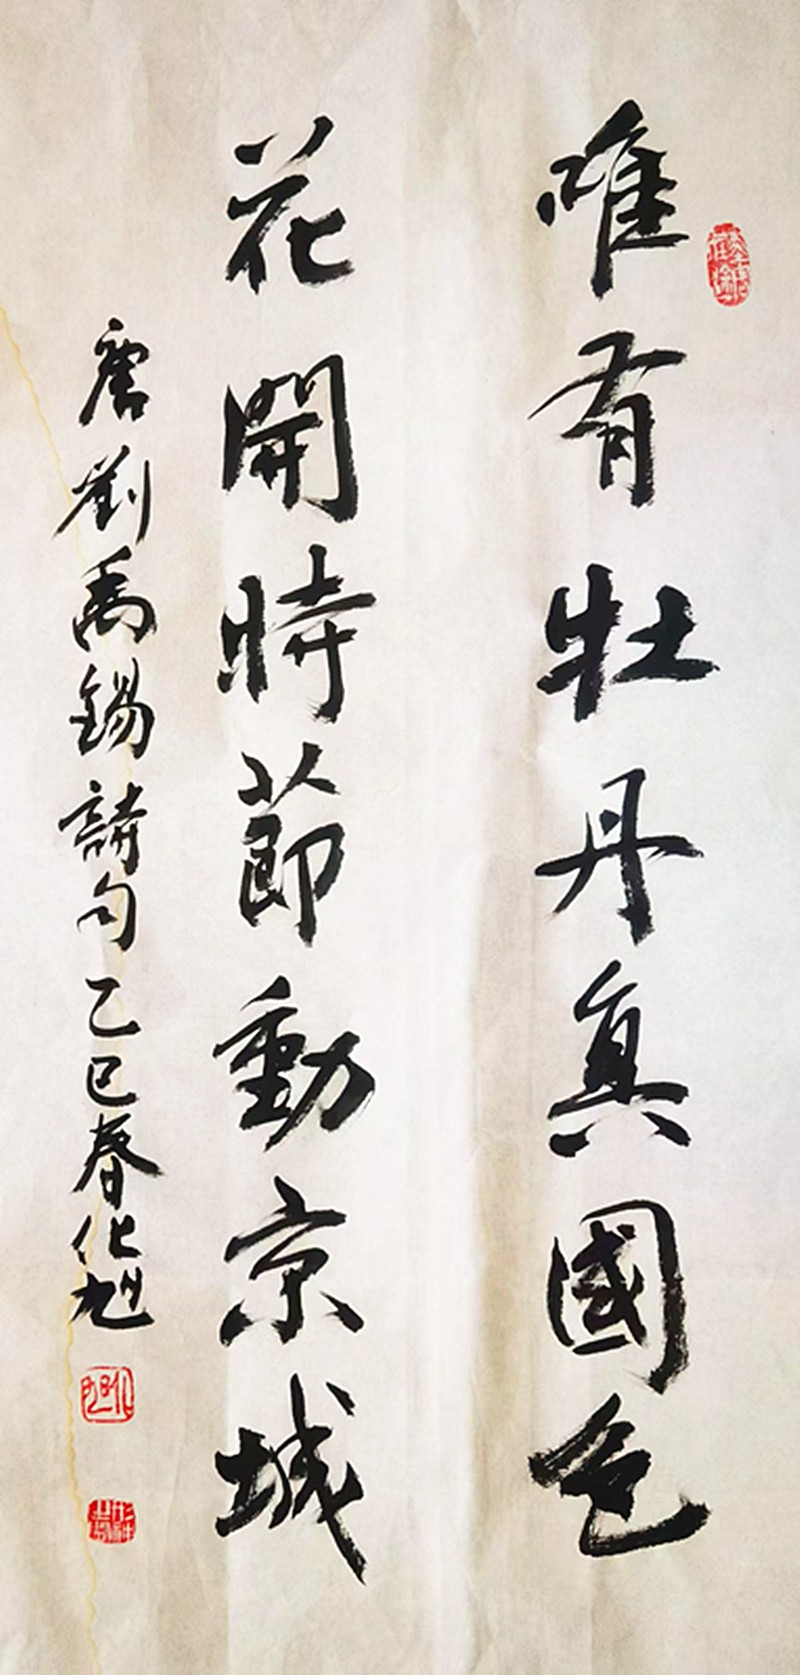 唯有牡丹真國色
花開時節動京城
唐劉禹錫詩句乙巳春化旭